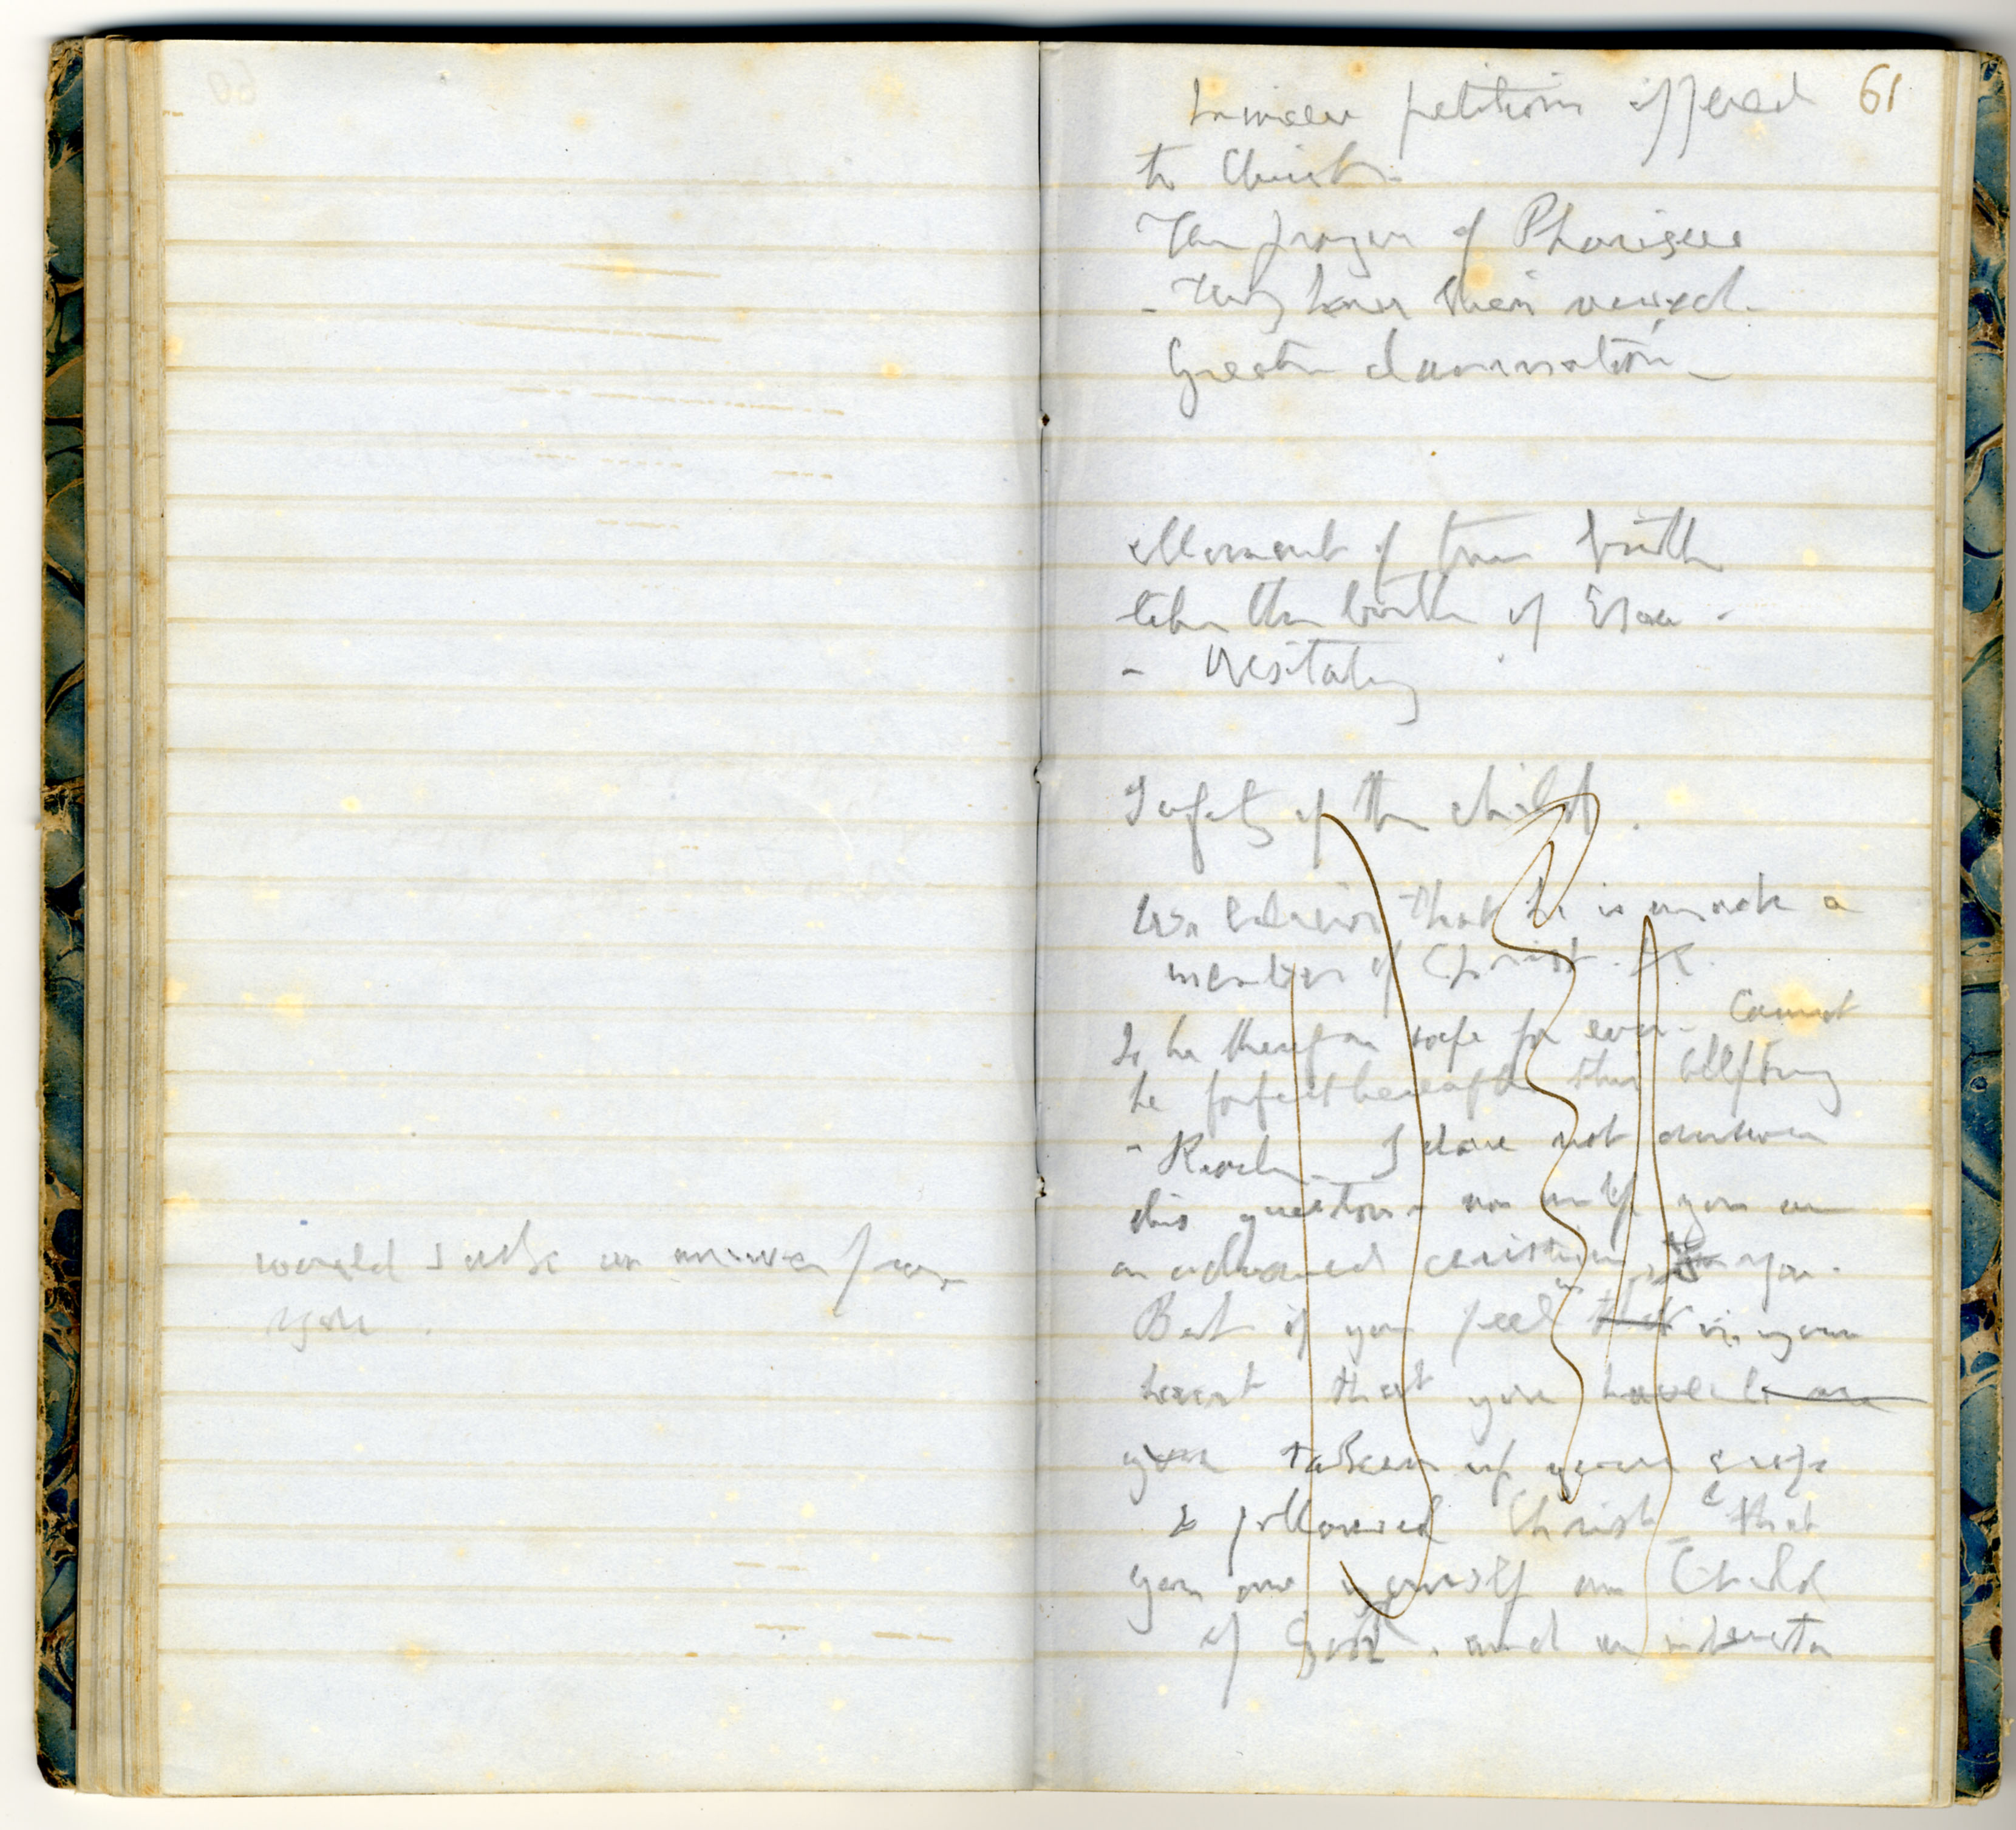 would I ask an answer from
you.
61
petitions offered
to Christ.
The prayer of Pharisees
- They have their reward.
Greater damnation -
of true faith
like the birth of Esau -
- Hesitating
Safety of the child.
We believe that he is made a
member of Christ. &c.
Is he therefore safe for ever - Cannot
he forfeit hereafter this blessing
- Reader I dare not answer
this question - unless you are
an advanced christian, you.
But if you feel that in your
heart that you have
you taken up your cross
& followed Christ & that
you are yourself a Child
of God, and an inheritor